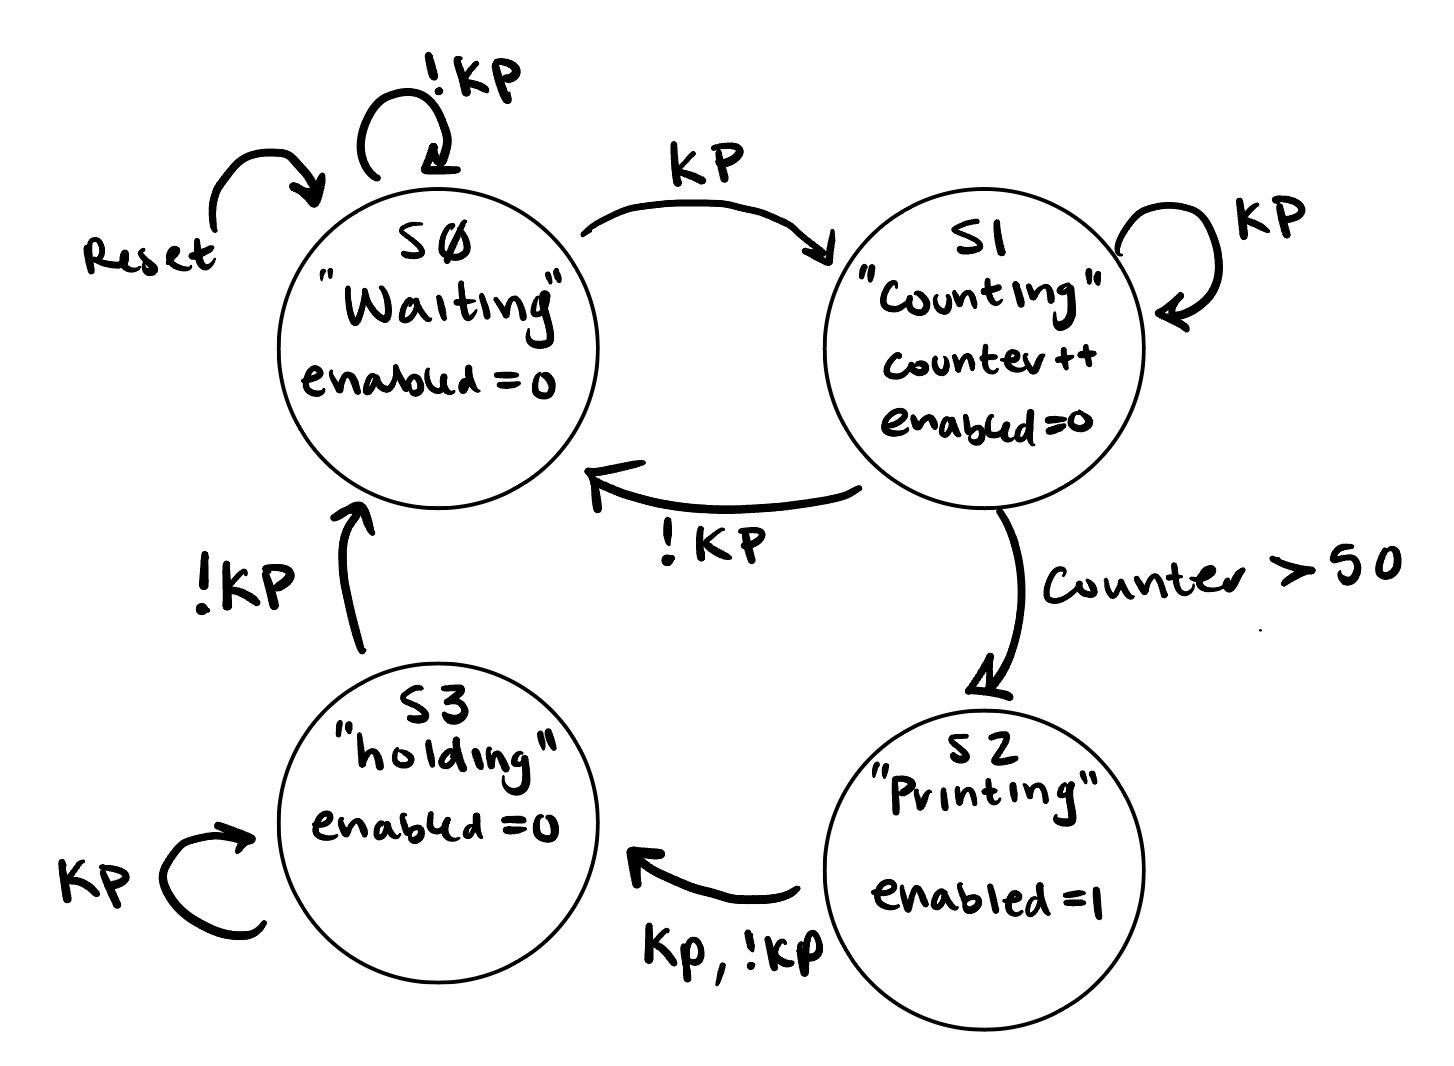 !KP
KP
Reset
SØ
"Waiting"
enabled = 0
S1
"Counting"
counter++
enabled=0
KP
!KP
!KP
Counter > 50
S3
"holding"
enabled =0
KP
S2
"Printing"
enabled =1
Kp, !Kp